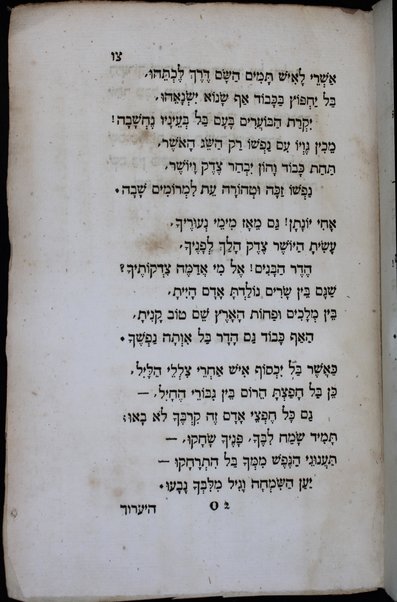 צו
אַשְׁרֵי לָאִישׁ תָּמִים הַשָּׂם דֶּרֶךְ לְכְתֵּהוּ,
בַּל יַחְפּוֹץ בַּכָּבוֹד אַף שָׂנוֹא יִשְׂנָאֵהוּ,
יִקְרַת הַבּוֹעֲרִים בָּעָם בַּל בְּעֵינָיו נֶחְשָׁבָה!
מֵכִין גְּוִיּוֹ עִם נַפְשׁוֹ רַק הַשֵּׂג הָאֹשֶׁר,
תַּחַת כָּבוֹד וָהוֹן יִבְחַר צֶדֶק וָיוֹשֶׁר,
נַפְשׁוֹ זַכָּה וּטְהוֹרָה עֵת לַמְּרוֹמִים שָׁבָה.
אָחִי יוֹנָתָן! גַּם מֵאָז מִימֵי נְעוּרֶיךָ,
עָשִׂיתָ הַיּוֹשֶׁר צֶדֶק הָלַךְ לְפָנֶיךָ,
הֲדַר הַבָּנִים! אֶל מִי אֲדַמֶּה צִדְקוֹתֶיךָ?
שַׁגַּם בֵּין שָׂרִים נוֹלַדְתָּ אָדָם הָיִיתָ,
בֵּין מְלָכִים וּפַחוֹת הָאָרֶץ שֵׁם טוֹב קָנִיתָ,
הַאַף כָּבוֹד גַּם הָדָר בַּל אִוְּתָה נַפְשֶׁךָ.
כַּאֲשֶׁר בַּל יִכְסוֹף אִישׁ אַחֲרֵי צִלְלֵי הַלַּיִל,
כֵּן בַּל חָפַצְתָּ הָרוֹם בֵּין גִּבּוֹרֵי הֶחָיִל, —
גַּם כָּל חֶפְצֵי אָדָם זֶה קִרְבְּךָ לֹא בָאוּ;
תָּמִיד שָׂמַח לִבֶּךָ, פָּנֶיךָ שָׂחֲקוּ, —
תַּעֲנוּגֵי הַנֶּפֶשׁ מִמְּךָ בַּל הִתְרָחֲקוּ —
יַעַן הַשִּׂמְחָה וָגִיל מִלִּבְּךָ נָבָעוּ.
O 2 היערוך